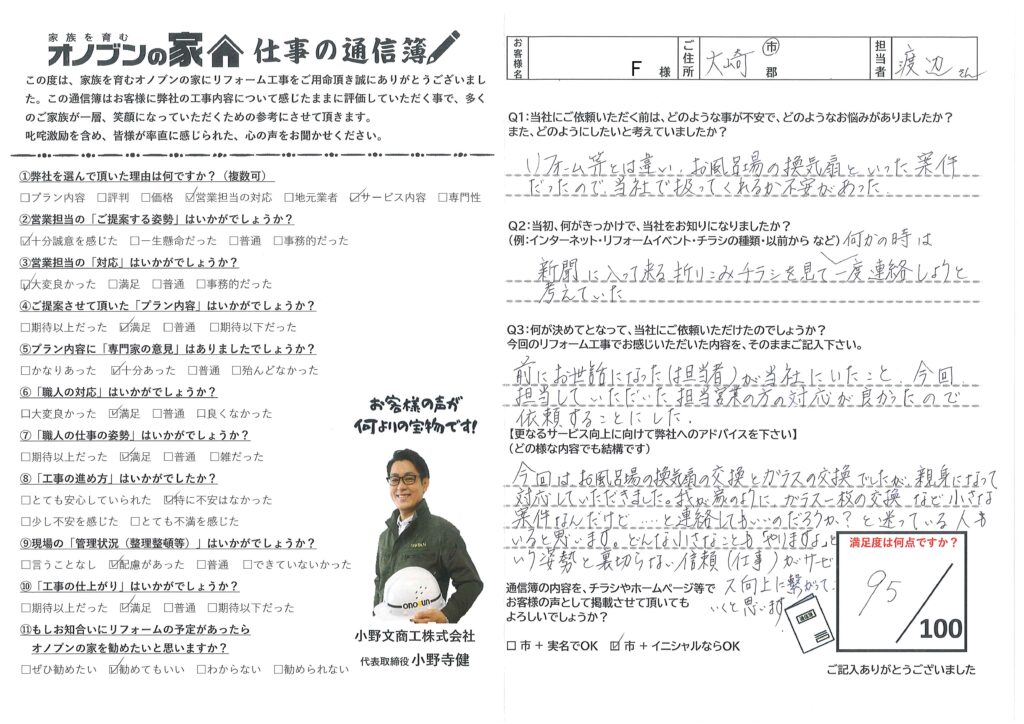 家族を育む
オノブンの家 仕事の通信簿
この度は、家族を育むオノブンの家にリフォーム工事をご用命頂き誠にありがとうございまし
た。この通信簿はお客様に弊社の工事内容について感じたままに評価していただく事で、多く
のご家族が一層、笑顔になっていただくための参考にさせて頂きます。
叱咤激励を含め、皆様が率直に感じられた、心の声をお聞かせください。
①弊社を選んで頂いた理由は何ですか？（複数可）
□プラン内容 □評判 □価格 ☑営業担当の対応 □地元業者 ☑サービス内容 □専門性
②営業担当の「ご提案する姿勢」はいかがでしょうか？
☑十分誠意を感じた □一生懸命だった □普通 □事務的だった
③営業担当の「対応」はいかがでしょうか？
☑大変良かった □満足 □普通 □事務的だった
④ご提案させて頂いた「プラン内容」はいかがでしょうか？
□期待以上だった ☑満足 □普通 □期待以下だった
⑤プラン内容に「専門家の意見」はありましたでしょうか？
□かなりあった ☑十分あった □普通 □殆んどなかった
⑥「職人の対応」はいかがでしょうか？
□大変良かった ☑満足 □普通 □良くなかった
⑦「職人の仕事の姿勢」はいかがでしょうか？
□期待以上だった ☑満足 □普通 □雑だった
⑧「工事の進め方」はいかがでしたか？
□とても安心していられた ☑特に不安はなかった
□少し不安を感じた □とても不満を感じた
⑨現場の「管理状況（整理整頓等）」はいかがでしょうか？
□言うことなし ☑配慮があった □普通 □できていなかった
⑩「工事の仕上がり」はいかがでしょうか？
□期待以上だった ☑満足 □普通 □期待以下だった
⑪もしお知合いにリフォームの予定があったら
オノブンの家を勧めたいと思いますか？
□ぜひ勧めたい ☑勧めてもいい □わからない □勧められない
お客様の声が
何よりの宝物です！
onobun
小野文商工株式会社
代表取締役 小野寺健
お客様名 F 様 ご住所 大崎 市 郡 担当者 渡辺 さん
Q1：当社にご依頼いただく前は、どのような事が不安で、どのようなお悩みがありましたか？
また、どのようにしたいと考えていましたか？
リフォーム等とは違い、お風呂場の換気扇といった案件
だったので、当社で扱ってくれるか不安があった.
Q2：当初、何がきっかけで、当社をお知りになりましたか？
（例：インターネット・リフォームイベント・チラシの種類・以前から など）何かの時は
新聞に入って来る折りこみチラシを見て一度連絡しようと
考えていた
Q3：何が決めてとなって、当社にご依頼いただけたのでしょうか？
今回のリフォーム工事でお感じいただいた内容を、そのままご記入下さい。
前にお世話になった（担当者）が当社にいたこと、今回
担当していただいた担当営業の方の対応が良かったので
依頼することにした.
【更なるサービス向上に向けて弊社へのアドバイスを下さい】
（どの様な内容でも結構です）
今回はお風呂場の換気扇の交換とガラスの交換でしたが、親身になって
対応していただきました。我が家のように、ガラス一枚の交換など小さな
案件なんだけど……と連絡してもいいのだろうか？と迷っている人も
いると思います。どんな小さなこともやりますよと
いう姿勢と裏切らない信頼（仕事）がサービ
ス向上に繋がって
いくと思います
通信簿の内容を、チラシやホームページ等で
お客様の声として掲載させて頂いても
よろしいでしょうか？
□ 市 + 実名でOK ☑ 市 + イニシャルならOK
通信簿
満足度は何点ですか？
95
100
ご記入ありがとうございました